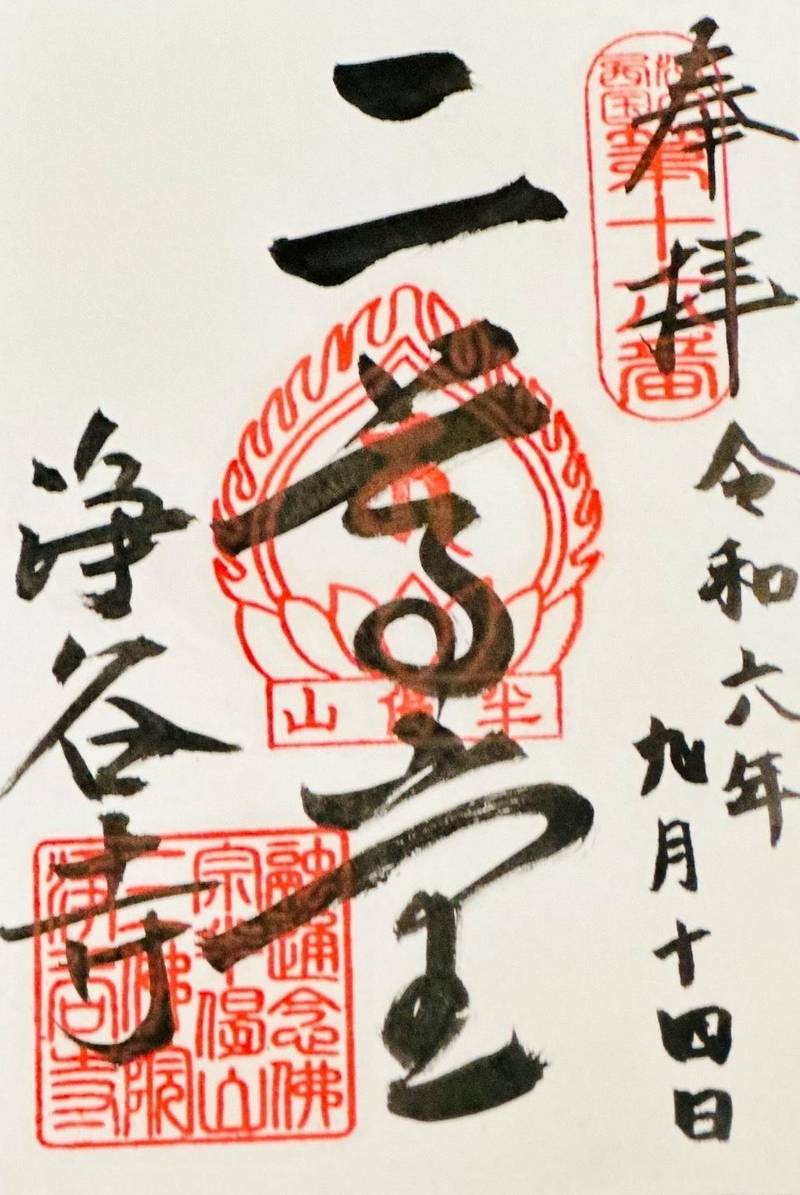 奉拝
西国
令和六年
九月十四日
二尊堂
半偈山
浄谷寺
融通念佛
宗半偈山
二佛院
浄谷寺